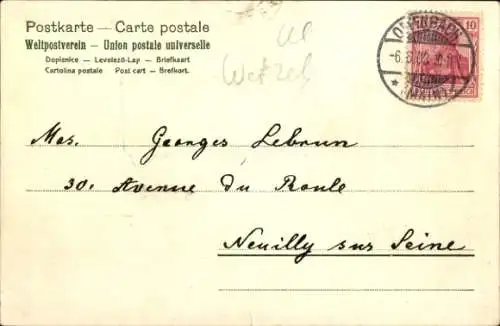 Postkarte — Carte postale
Weltpostverein — Union postale universelle
Dopisnice — Levelező-Lap — Briefkaart
Cartolina postale Post cart — Brefkort.
Wetzel
OFFENBACH
10
(MAIN)
Mos. Georges Lebrun
30. Avenue du Roule
Neuilly sur Seine